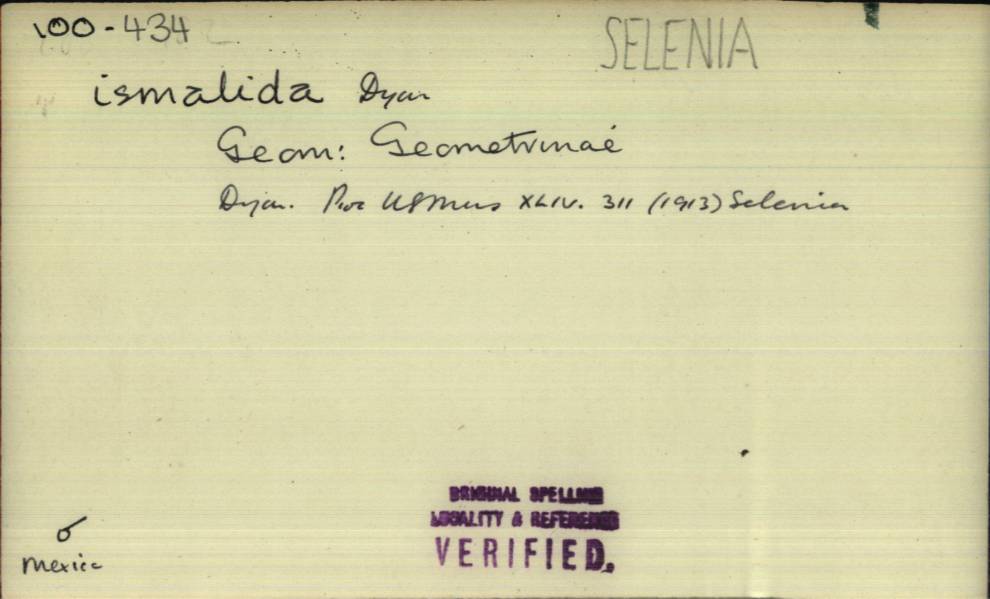 100-434
SELENIA
ismalida Dyar
Geom: Geometrinae
Dyar. Proc US Mus XLIV. 311 (1913) Selenia
♂
Mexico
ORIGINAL SPELLING
LOCALITY & REFERENCE
VERIFIED.